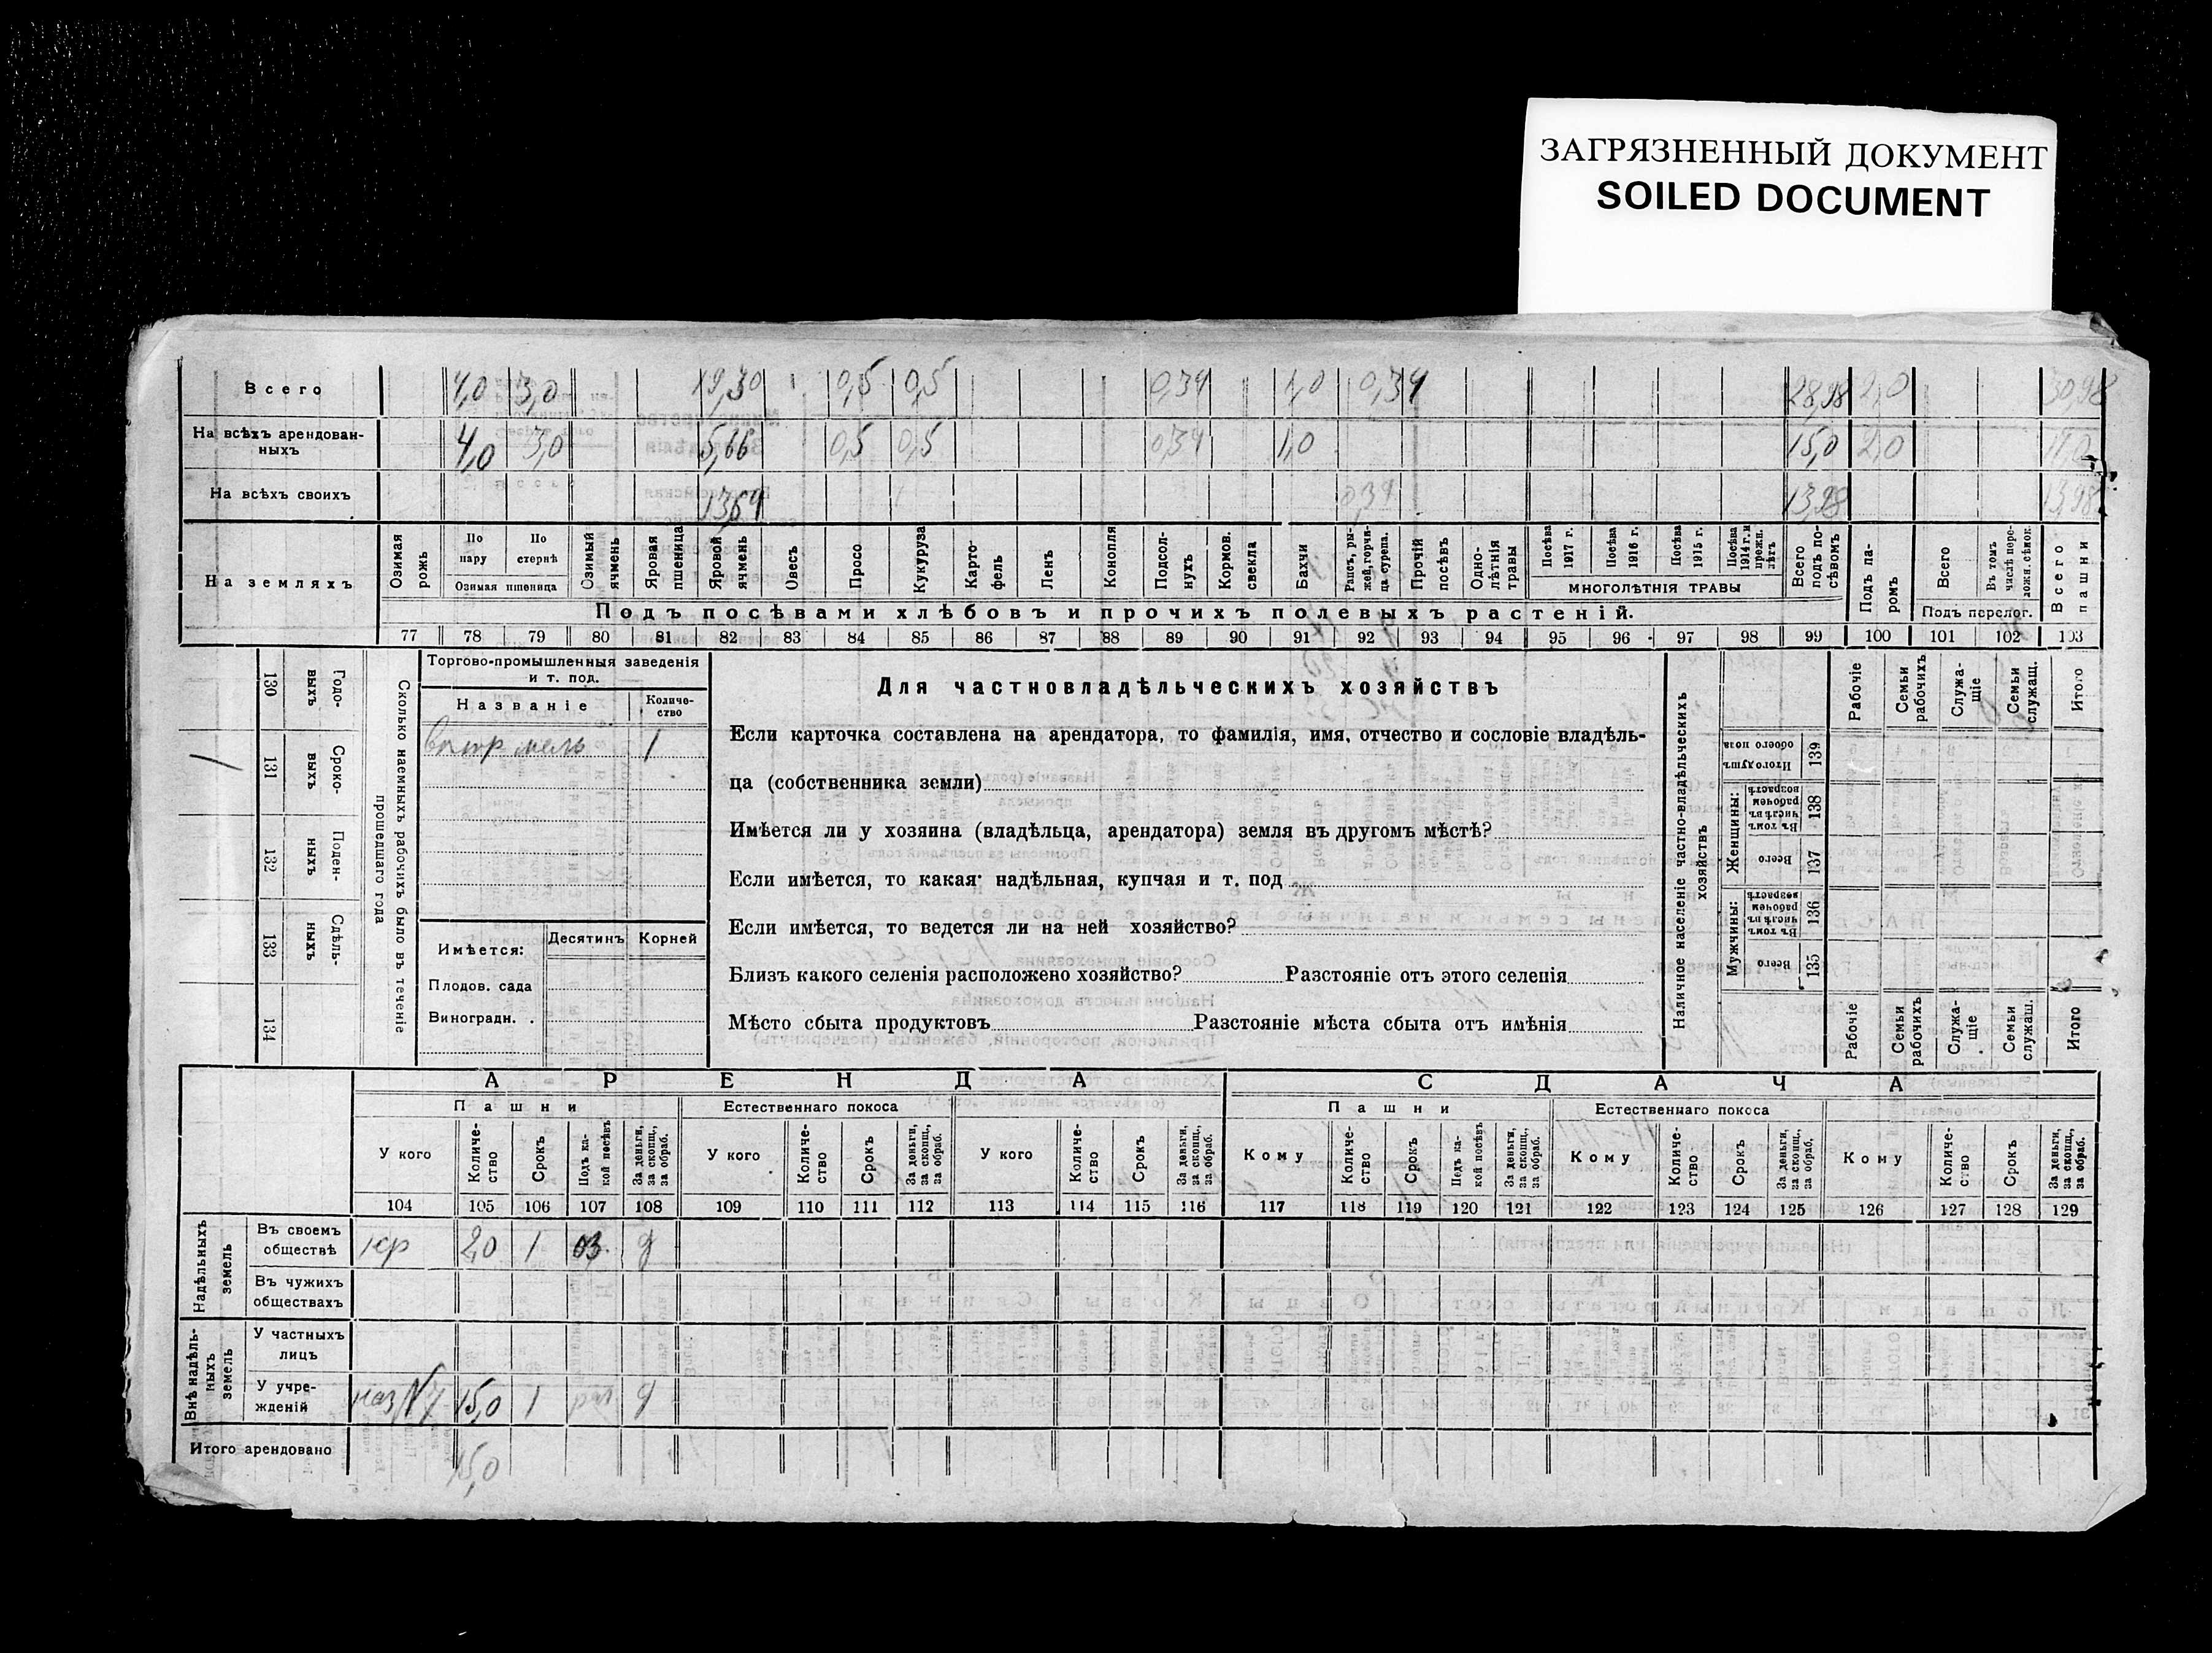 ЗАГРЯЗНЕННЫЙ ДОКУМЕНТ
SOILED DOCUMENT
Всего 4,0 3,0 19,30 0,5 0,5 0,34 1,0 0,34 28,98 2,0 30,98
На всѣхъ арендован-
ныхъ 4,0 3,0 5,66 0,5 0,5 0,34 1,0 15,0 2,0
На всѣхъ своихъ 13,64 0,34 13,98 13,98
На земляхъ
Озимая рожь
По пару
По стернѣ
Озимая пшеница
Озимый ячмень
Яровая пшеница
Яровой ячмень
Овесъ
Просо
Кукуруза
Карто-
фель
Ленъ
Конопля
Подсол-
нухъ
Кормов. свекла
Бахчи
Рапсъ, ры-
жей, горчи-
ца, сурепа.
Прочій посѣвъ
Одно-
лѣтнія травы
Посѣва 1917 г.
Посѣва 1916 г.
Посѣва 1915 г.
Посѣва 1914 г. и прежн. лѣтъ
МНОГОЛѢТНІЯ ТРАВЫ
Всего подъ по-
сѣвомъ
Подъ па-
ромъ
Всего
Въ томъ числѣ пере-
ложн. сѣнок.
Подъ перелог.
Всего пашни
Подъ посѣвами хлѣбовъ и прочихъ полевыхъ растеній.
77 78 79 80 81 82 83 84 85 86 87 88 89 90 91 92 93 94 95 96 97 98 99 100 101 102 103
130 Годо-
выхъ
131 Сроко-
выхъ
132 Поден-
ныхъ
133 Сдѣль-
ныхъ
134
Сколько наемныхъ рабочихъ было въ теченіе
прошедшаго года
Торгово-промышленныя заведенія
и т. под.
Названіе
Количе-
ство
ветр мель 1
Имѣется: Десятинъ Корней
Плодов. сада
Виноградн. .
Для частновладѣльческихъ хозяйствъ
Если карточка составлена на арендатора, то фамилія, имя, отчество и сословіе владѣль-
ца (собственника земли)
Имѣется ли у хозяина (владѣльца, арендатора) земля въ другомъ мѣстѣ?
Если имѣется, то какая: надѣльная, купчая и т. под
Если имѣется, то ведется ли на ней хозяйство?
Близъ какого селенія расположено хозяйство? Разстояніе отъ этого селенія
Мѣсто сбыта продуктовъ Разстояніе мѣста сбыта отъ имѣнія
Наличное населеніе частно-владѣльческихъ
хозяйствъ
Рабочіе
Семьи рабочихъ
Служа-
щіе
Семьи служащ.
Итого
Итого душъ обоего пола 139
Женщины:
Въ томъ числѣ въ рабочем возрастѣ 138
Всего 137
Мужчины:
Въ томъ числѣ въ рабочем возрастѣ 136
Всего 135
Рабочіе
Семьи рабочихъ
Служа-
щіе
Семьи служащ.
Итого
АРЕНДА СДАЧА
Пашни Естественнаго покоса Пашни Естественнаго покоса
У кого
Количе-
ство
Срокъ
Подъ ка-
кой посѣвъ
За деньги, за скопщ., за обраб.
У кого
Количе-
ство
Срокъ
За деньги, за скопщ., за обраб.
У кого
Количе-
ство
Срокъ
За деньги, за скопщ., за обраб.
Кому
Количе-
ство
Срокъ
Подъ ка-
кой посѣвъ
За деньги, за скопщ., за обраб.
Кому
Количе-
ство
Срокъ
За деньги, за скопщ., за обраб.
Кому
Количе-
ство
Срокъ
За деньги, за скопщ., за обраб.
104 105 106 107 108 109 110 111 112 113 114 115 116 117 118 119 120 121 122 123 124 125 126 127 128 129
Надѣльныхъ
земель
Въ своемъ
обществѣ кр 2,0 1 оз. д
Въ чужихъ
обществахъ
Внѣ надѣль-
ныхъ
земель
У частныхъ
лицъ
У учре-
жденій 15,0 1 д
Итого арендовано 15,0